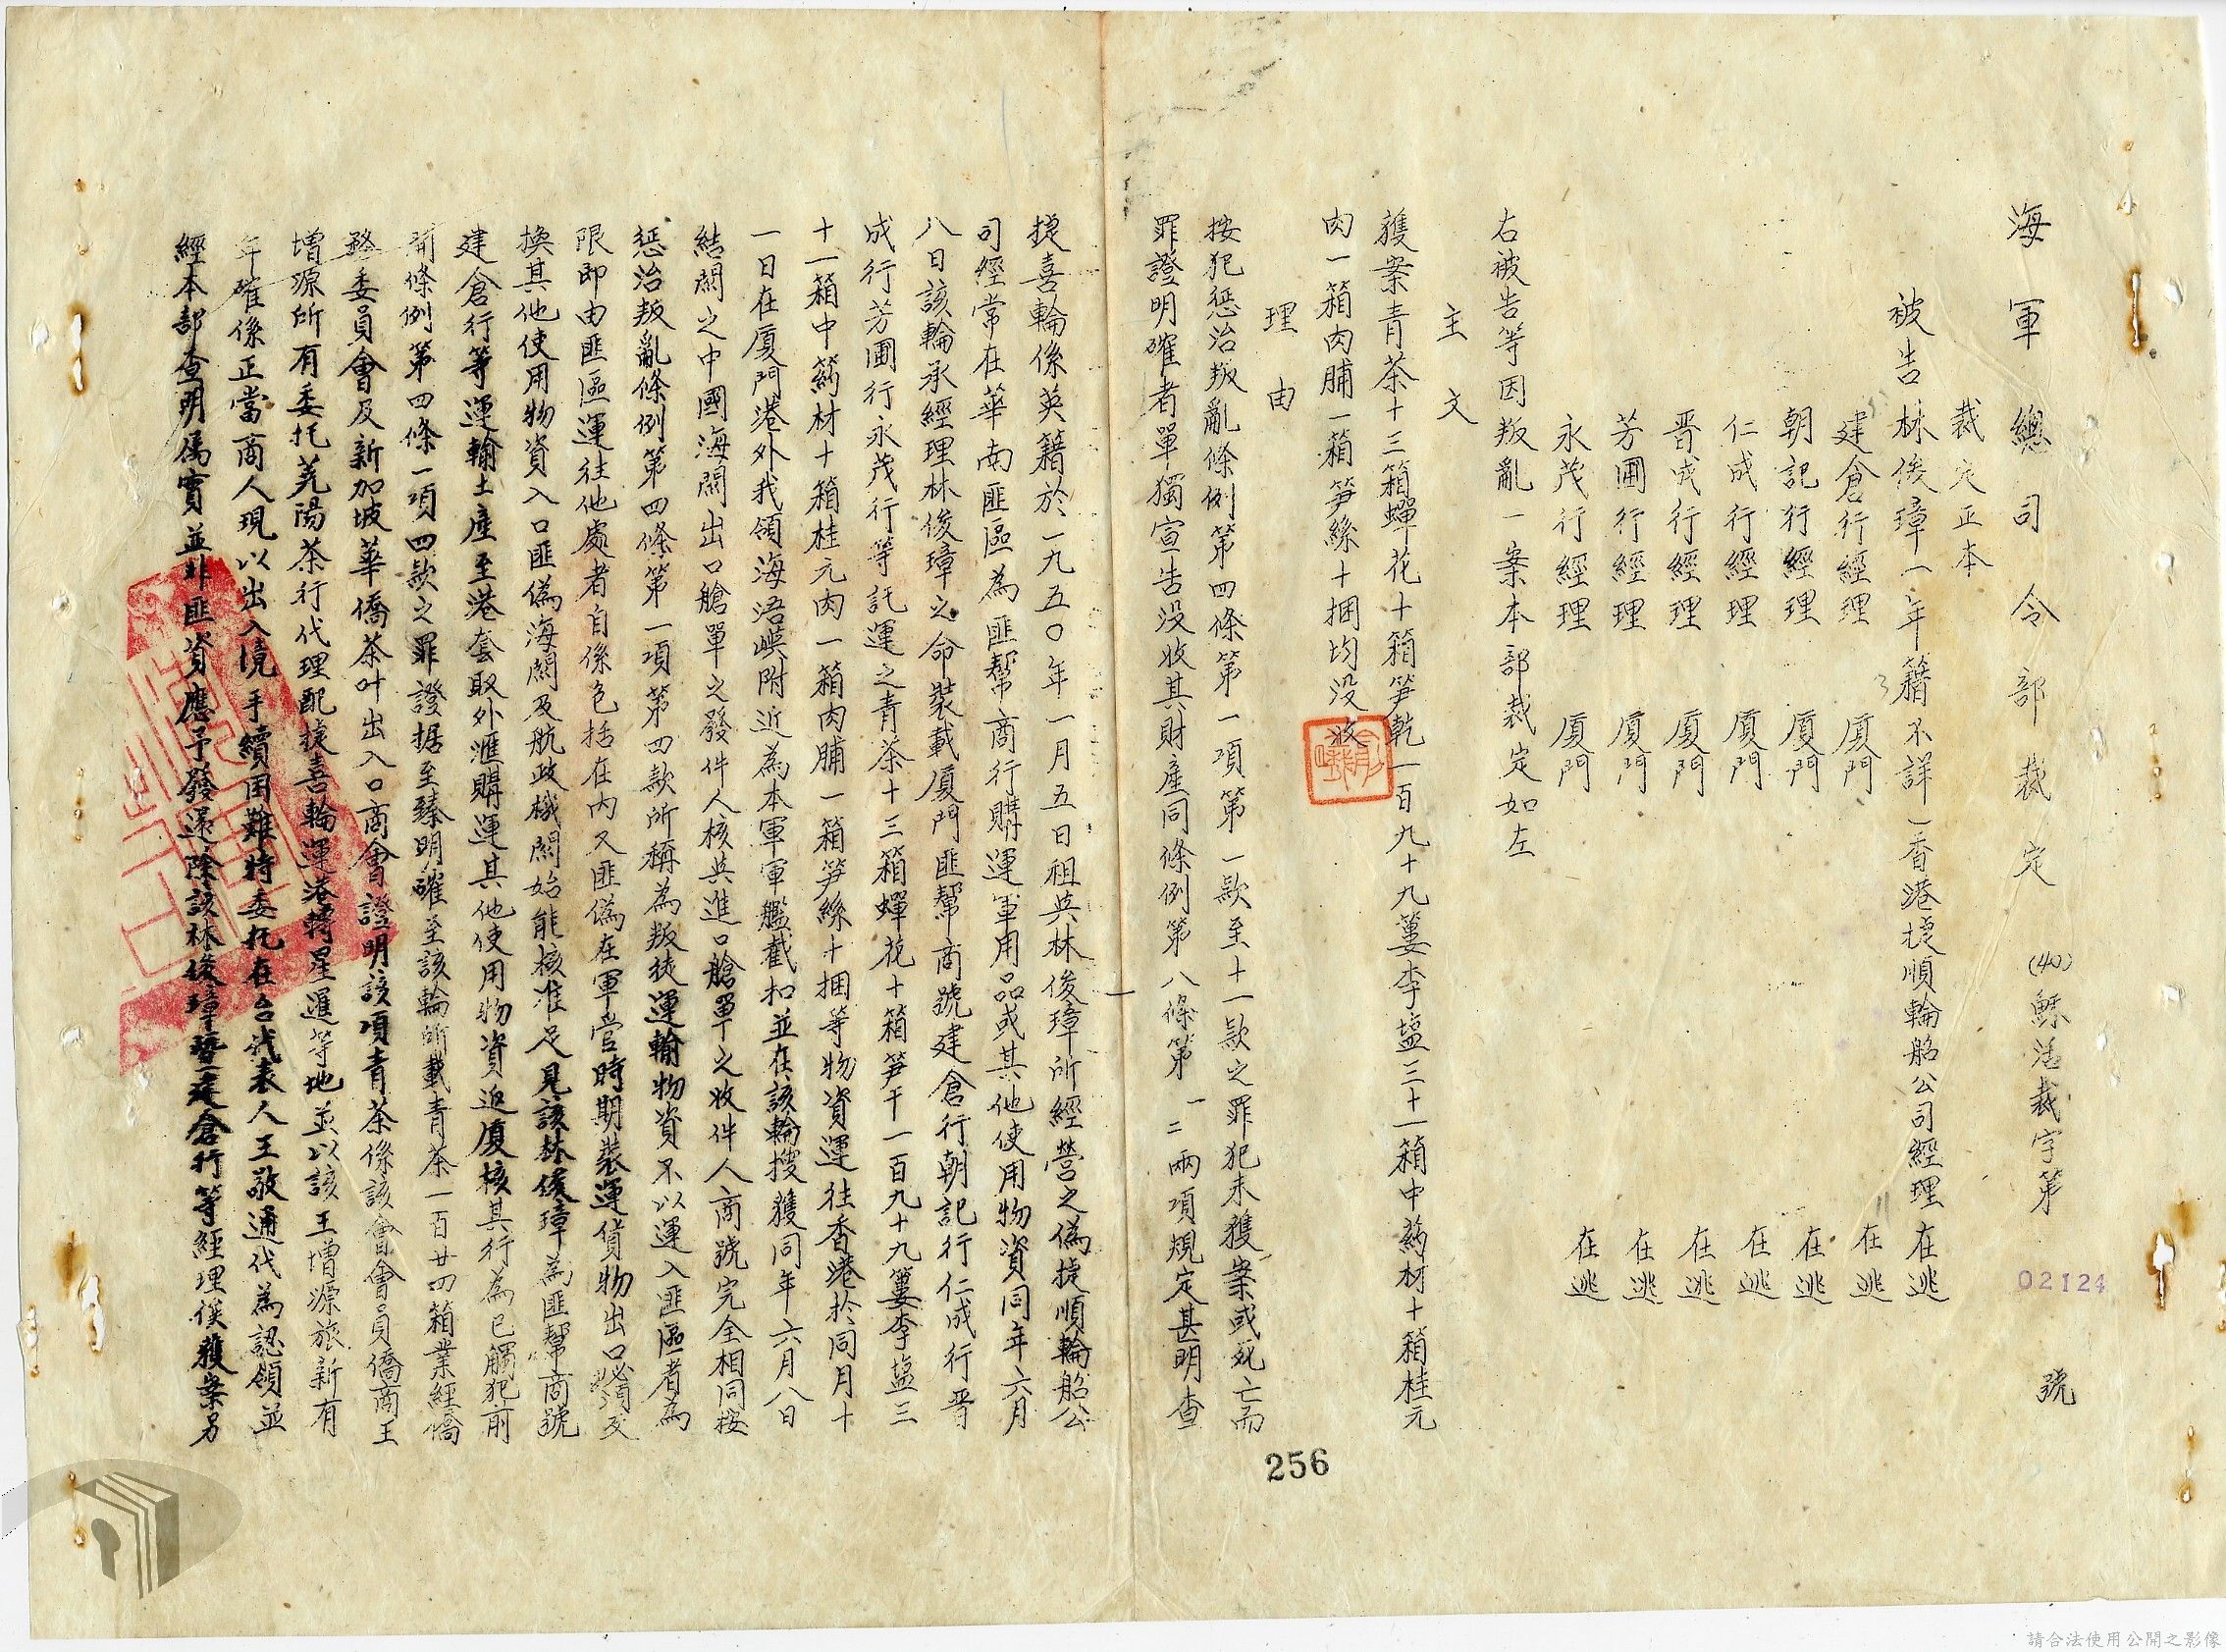 海軍總司令部裁定 (40)穌法裁字第 02124 號
裁定正本
被告 林俊璋 一年籍不詳 一香港捷順輪船公司經理 在逃
建倉行經理 廈門 在逃
朝記行經理 廈門 在逃
仁成行經理 廈門 在逃
晋成行經理 廈門 在逃
芳圃行經理 廈門 在逃
永茂行經理 廈門 在逃
右被告等因叛亂一案本部裁定如左
主文
獲案青茶十三箱蟬花十箱笋乾一百九十九簍李塩三十一箱中葯材十箱桂元
肉一箱肉脯一箱笋絲十捆均没收
理由
按犯惩治叛亂條例第四條第一項第一款至十一款之罪犯未獲案或死亡而
罪證明確者單獨宣告没收其財産同條例第八條第一二兩項規定甚明查
捷喜輪係英籍於一九五〇年一月五日租與林俊璋所經營之偽捷順輪船公
司經常在華南匪區為匪幫商行購運軍用品或其他使用物資同年六月
八日該輪承經理林俊璋之命裝載廈門匪幫商號建倉行朝記行仁成行晋
成行芳圃行永茂行等託運之青茶十三箱蟬花十箱笋干一百九十九簍李塩三
十一箱中葯材十箱桂元肉一箱肉脯一箱笋絲十捆等物資運往香港於同月十
一日在廈門港外我領海浯嶼附近為本軍軍艦截扣並在該輪搜獲同年六月八日
結關之中國海關出口艙單之發件人核與進口艙單之收件人商號完全相同按
惩治叛亂條例第四條第一項第四款所稱為叛徒運輸物資不以運入匪區者為
限即由匪區運往他處者自係包括在內又匪偽在軍管時期裝運貨物出口必須交
換其他使用物資入口匪偽海關及航政機關始能核准足見該林俊璋為匪幫商號
建倉行等運輸土産至港套取外滙購運其他使用物資返廈核其行為已觸犯前
開條例第四條一項四款之罪證据至臻明確至該輪所載青茶一百廿四箱業經僑
務委員會及新加坡華僑茶叶出入口商會證明該項青茶係該會會員僑商王
增源所有委托芫陽茶行代理配捷喜輪運港轉星暹等地並以該王增源旅新有
年確係正當商人現以出入境手續困難特委托在台代表人王敬通代為認領並
經本部查明属實並非匪資應予發還除該林俊璋暨建倉行等經理俟獲案另
256
請合法使用公開之影像